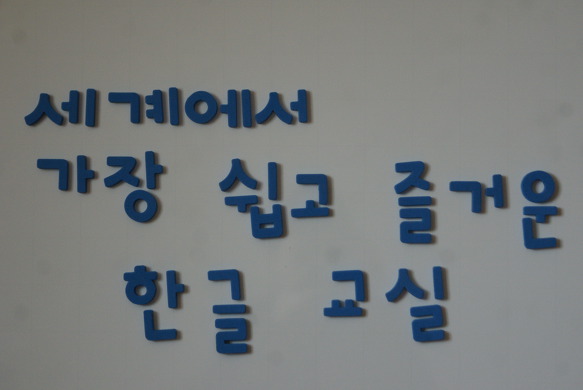 세계에서
가장 쉽고 즐거운
한글 교실